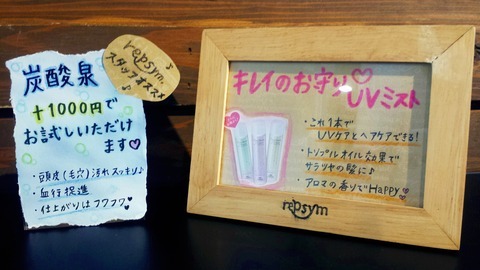 repsym.
スタッフオススメ♪
炭酸泉
+1000円で
お試しいただけ
ます♡
・頭皮(毛穴)汚れスッキリ♪
・血行促進
・仕上がりはフワフワ♥
キレイのお守り♡
UVミスト
・これ1本で
UVケアとヘアケアできる!
・トリプルオイル効果で
サラツヤの髪に♪
・アロマの香りでHappy♡
repsym